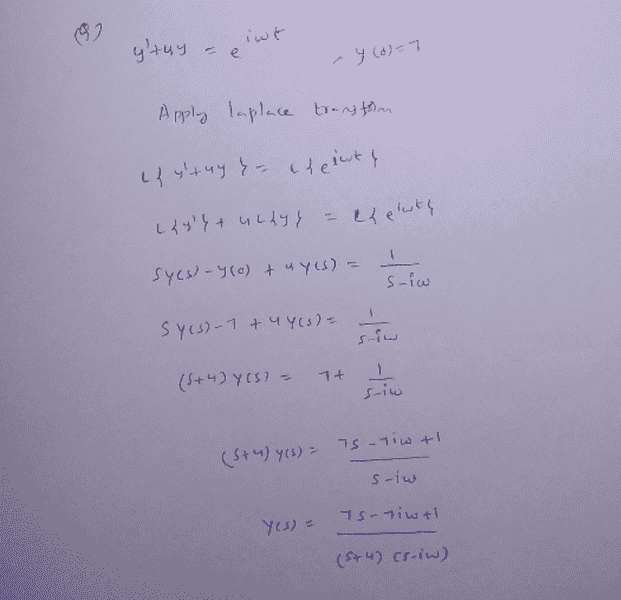 (9)
y'+4y = e^{iωt} , y(0)=7
Apply laplace transform
L{y'+4y} = L{e^{iωt}}
L{y'} + 4L{y} = L{e^{iωt}}
Sy(s) - y(0) + 4y(s) = 1/(s-iω)
Sy(s) - 7 + 4y(s) = 1/(s-iω)
(s+4) y(s) = 7 + 1/(s-iω)
(s+4) y(s) = (7s - 7iω + 1)/(s-iω)
y(s) = (7s - 7iω + 1)/((s+4)(s-iω))